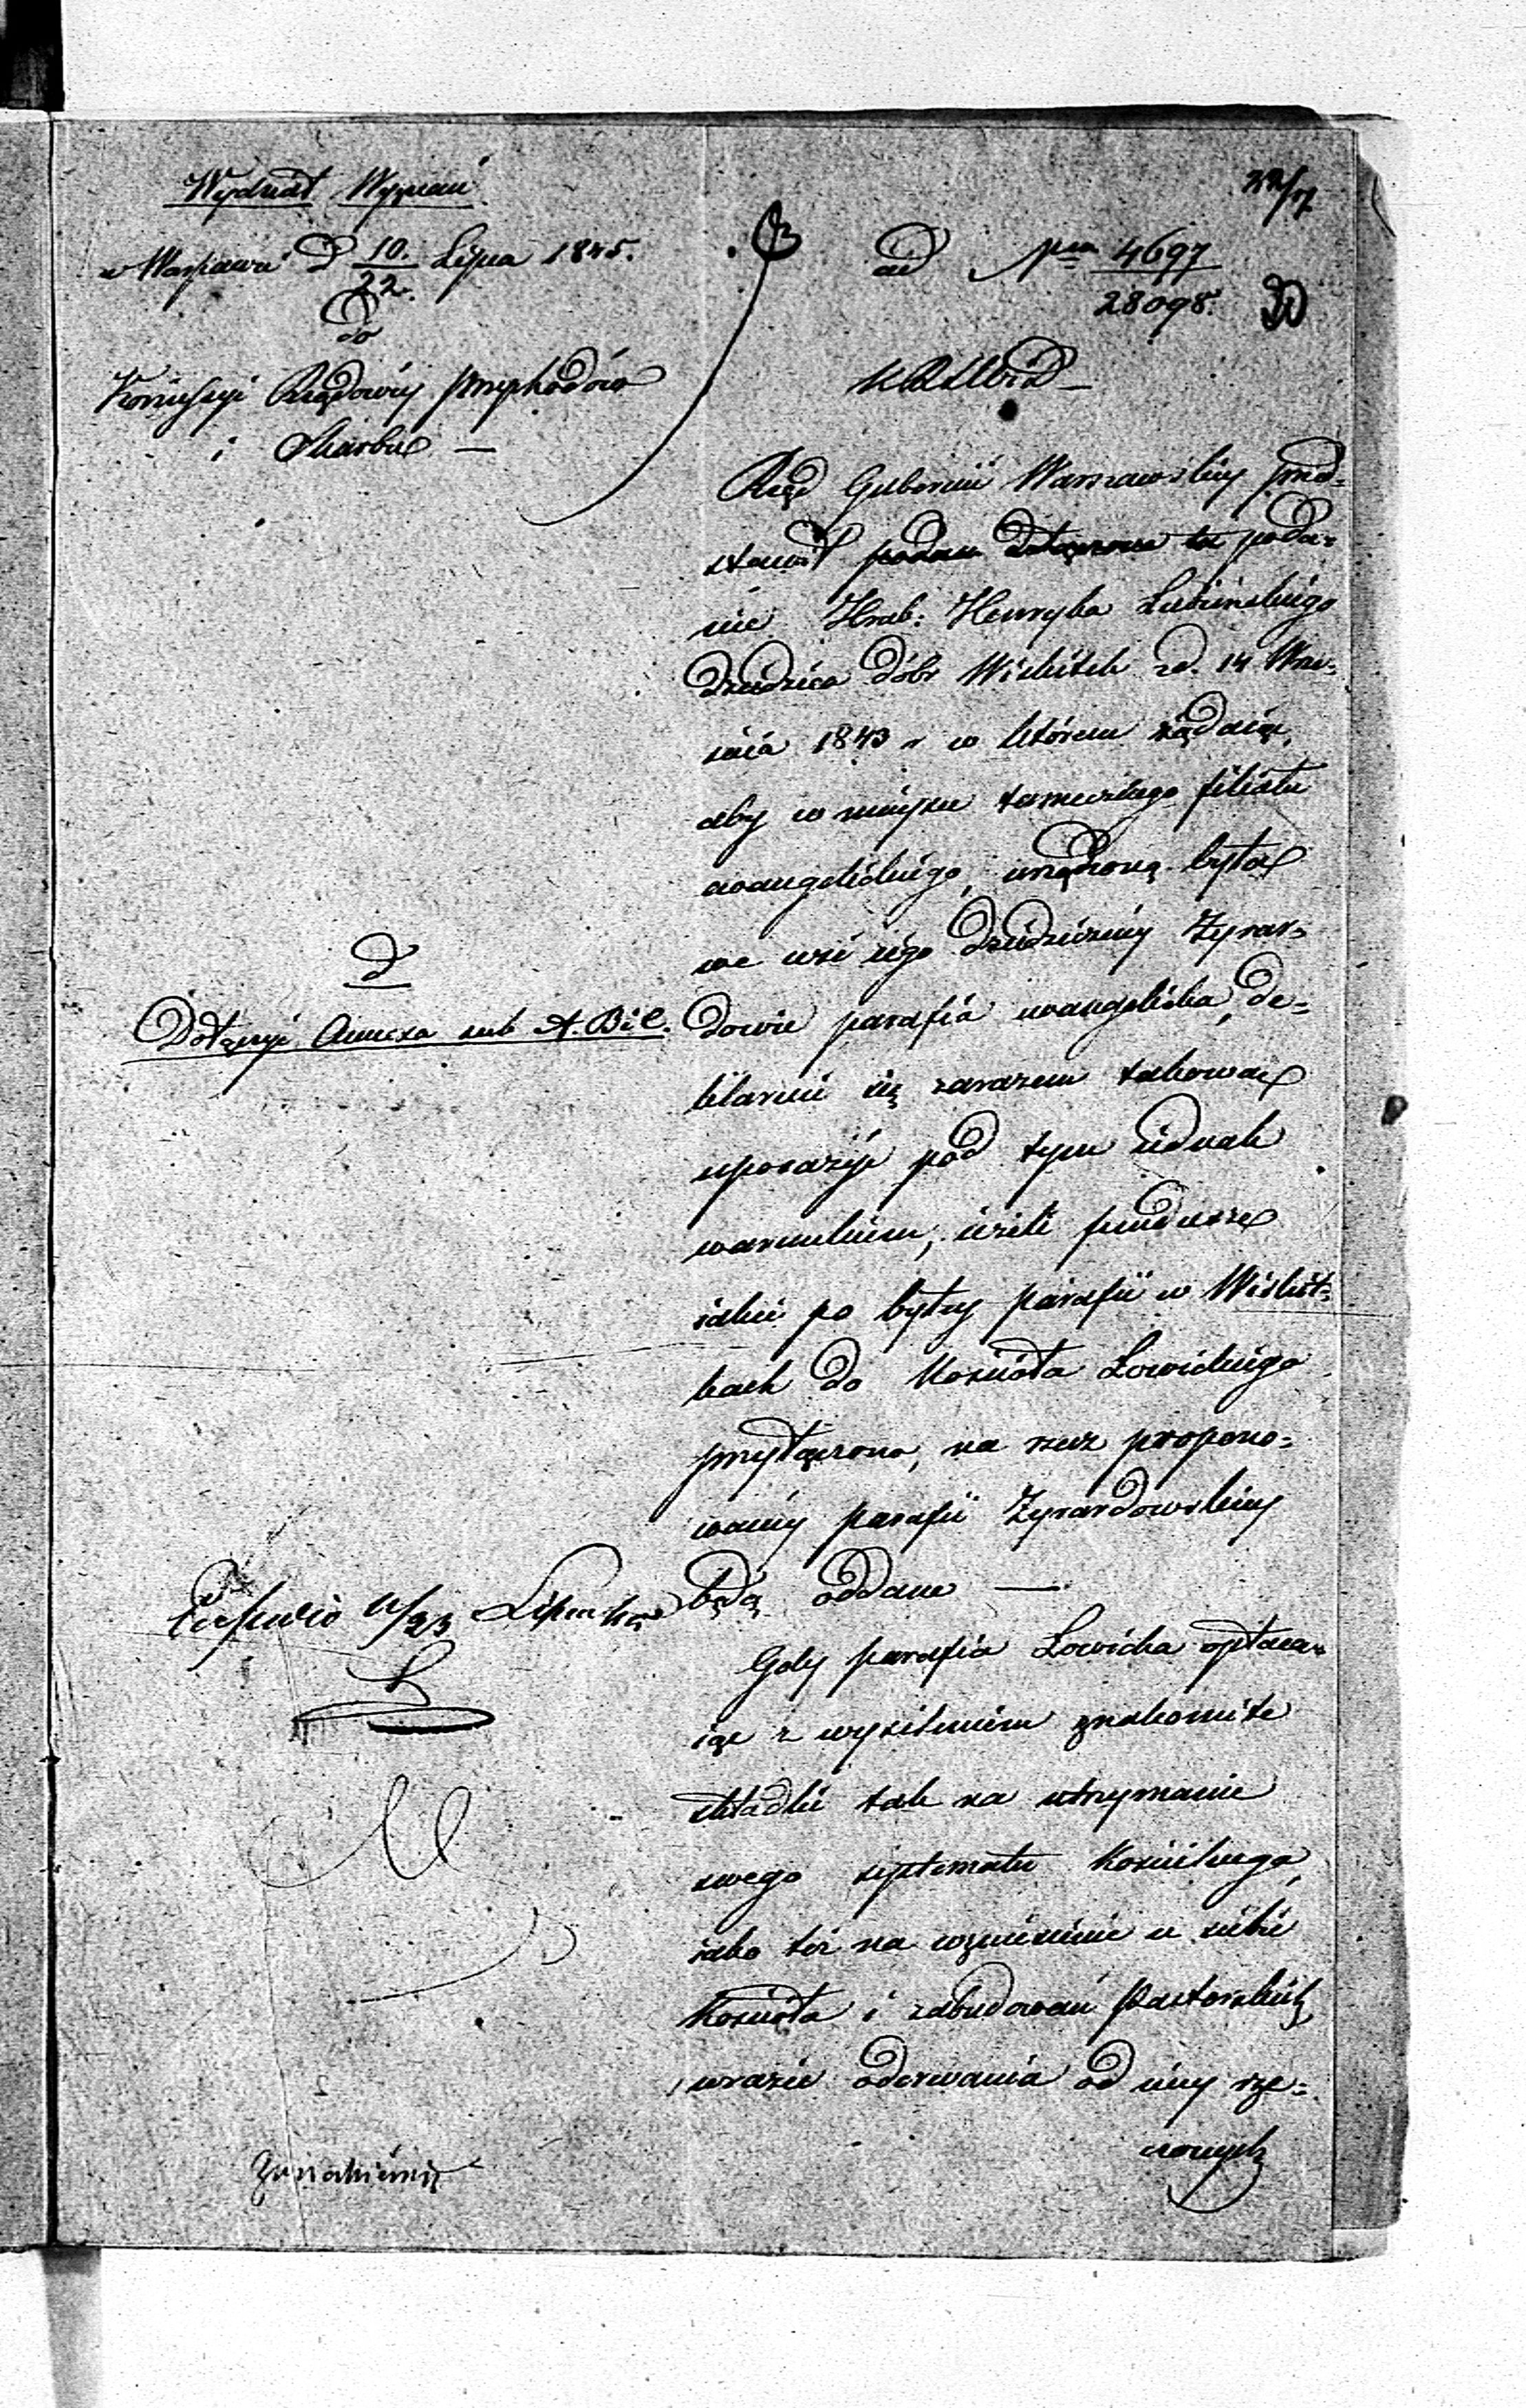 Wydział Wyznań
w Warszawie D 10./22. Lipca 1845.
do
Kommissyi Rządowéy Przychodów
i Skarbu —
ad Nrm 4697/28098.
KRSWiD —
Rząd Gubernii Warszawskiey przed-
stawił podanie dołączone tu poda-
nie Hrab: Henryka Łubieńskiego
dziedzica dóbr Wiskitek z d. 14 Wrze-
śnia 1843 r w którem żądaiąc,
aby w mieyscu tameczného filiału
ewangelickiego, urządzoną była
we wsi iego dziedziczney Żyrar-
dowie parafia ewangelicka, de-
klaruie się zarazem takową
uposażyć pod tym iednak
warunkiem, ieżeli fundusze
iakie po byłey parafii w Wiskit-
kach do Kościoła Łowickiego
przyłączono, na rzecz propono-
waney parafii Żyrardowskiey
będą oddane —
Gdy parafia Łowicka opłaca-
iąc z wysileniem znakomite
składki tak na utrzymanie
swego systematu Kościelnego,
iako też na wzniesienie u siebie
Kościoła i zabudowań Pastorskich,
wrazie oderwania od niey rze-
czonych
D
Dołączyć Annexa sub A. B i C.
11/23 Lipca